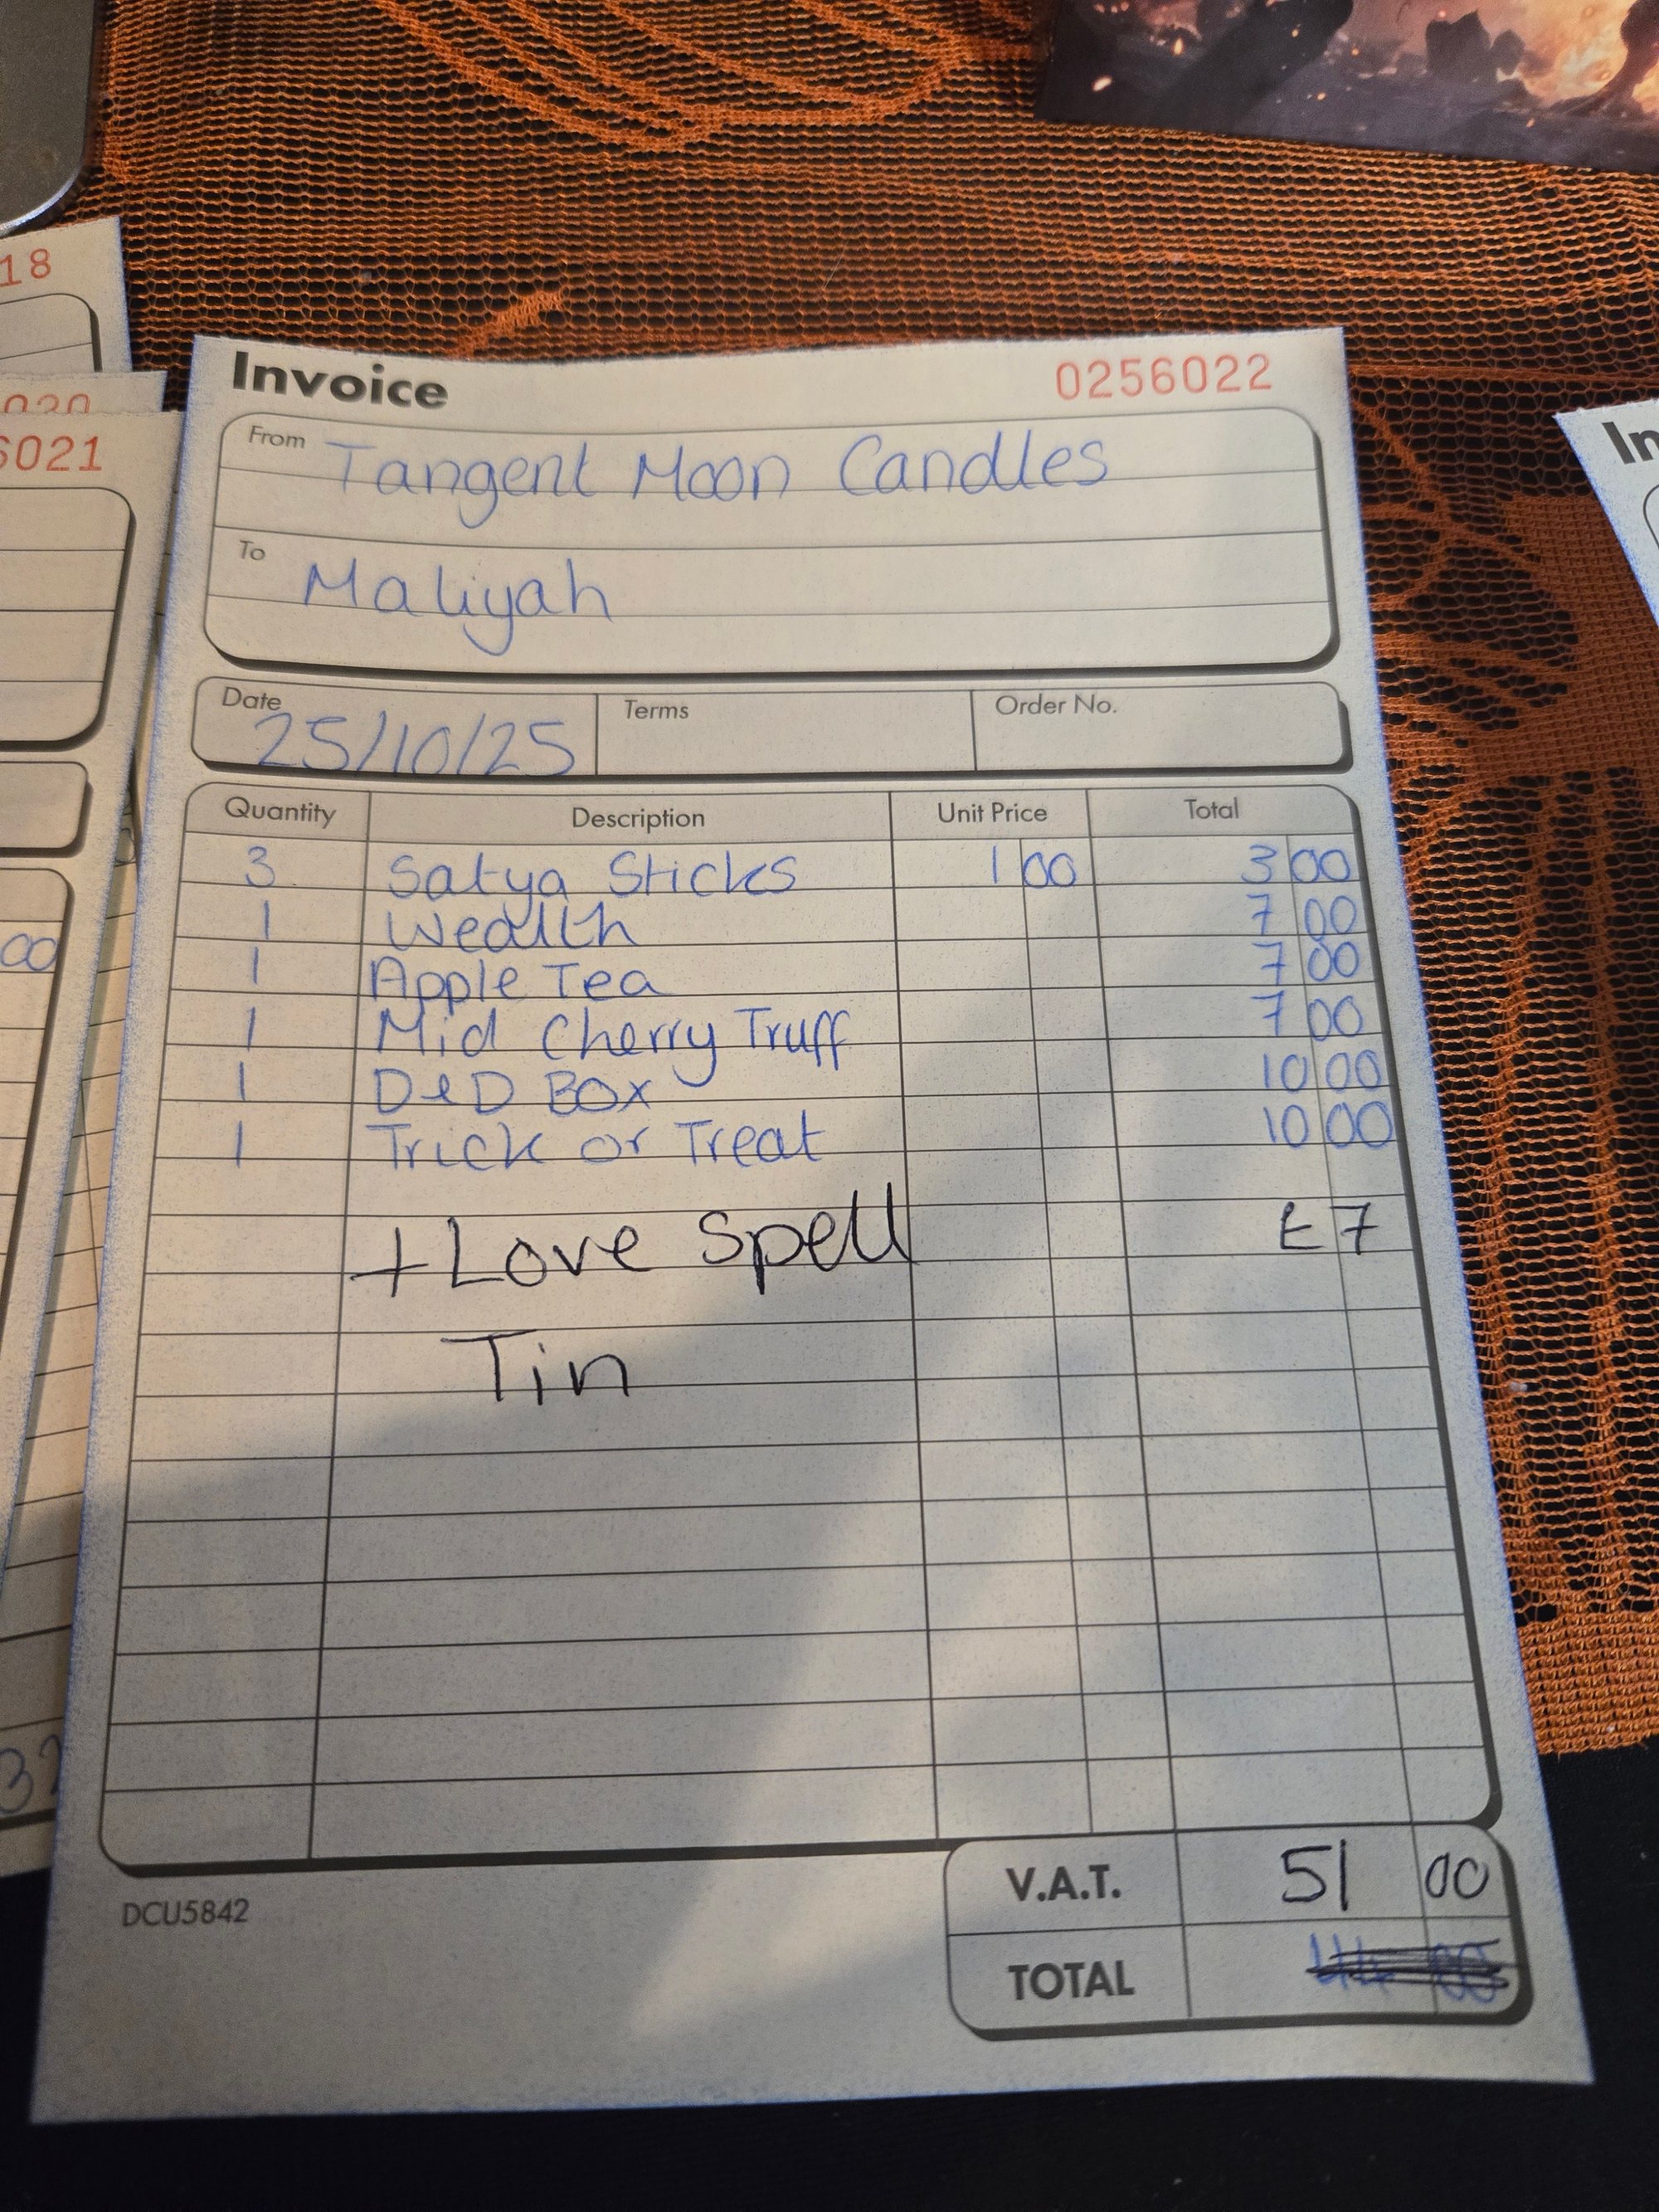 18
020
6021
Invoice 0256022
From Tangent Moon Candles
To Maliyah
Date 25/10/25 Terms Order No.
Quantity Description Unit Price Total
3 Satya Sticks 1 00 3 00
1 Wealth 7 00
1 Apple Tea 7 00
1 Mid Cherry Truff 7 00
1 D&D Box 10 00
1 Trick or Treat 10 00
+ Love Spell £7
Tin
V.A.T. 51 00
TOTAL 44 00
DCU5842
00
32
In